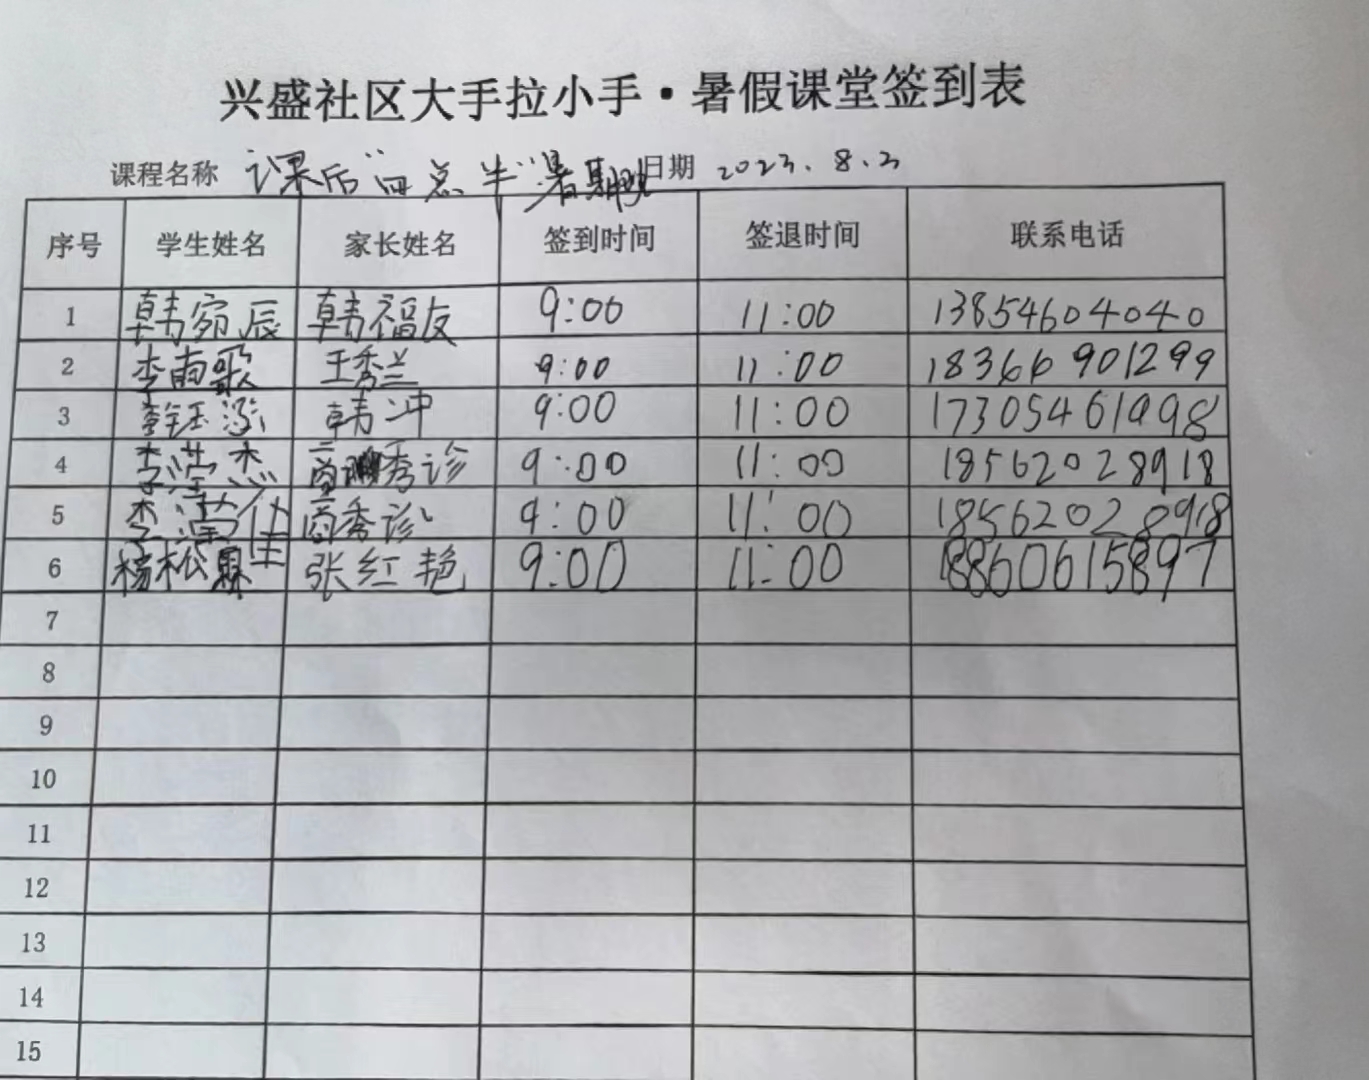 兴盛社区大手拉小手·暑假课堂签到表
课程名称 课后"四点半"暑期班 日期 2023.8.3
序号 学生姓名 家长姓名 签到时间 签退时间 联系电话
1 韩宛辰 韩福友 9:00 11:00 13854604040
2 李雨歌 王秀兰 9:00 11:00 18366901299
3 韩冲 9:00 11:00 17305461998
4 商秀诊 9:00 11:00 18562028918
5 商秀诊 9:00 11:00 18562028918
6 杨松霖 张红艳 9:00 11:00 18860615897
7
8
9
10
11
12
13
14
15